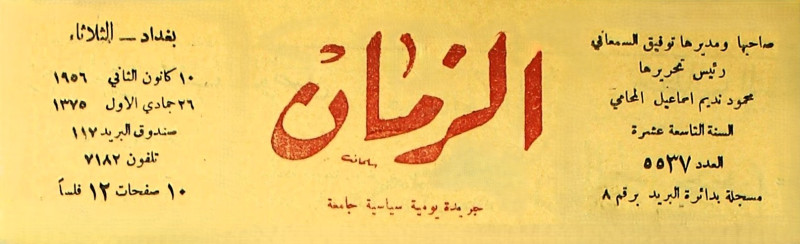 صاحبها ومديرها توفيق السمعاني
رئيس تحريرها
محمود نديم اسماعيل المحامي
السنة التاسعة عشرة
العدد ٥٥٣٧
مسجلة بدائرة البريد برقم ٨
الزمان
سلمان
جريدة يومية سياسية جامعة
بغداد ــ الثلاثاء
١٠ كانون الثاني ١٩٥٦
٢٦ جمادي الاول ١٣٧٥
صندوق البريد ١١٧
تلفون ٧١٨٢
١٠ صفحات ١٢ فلساً